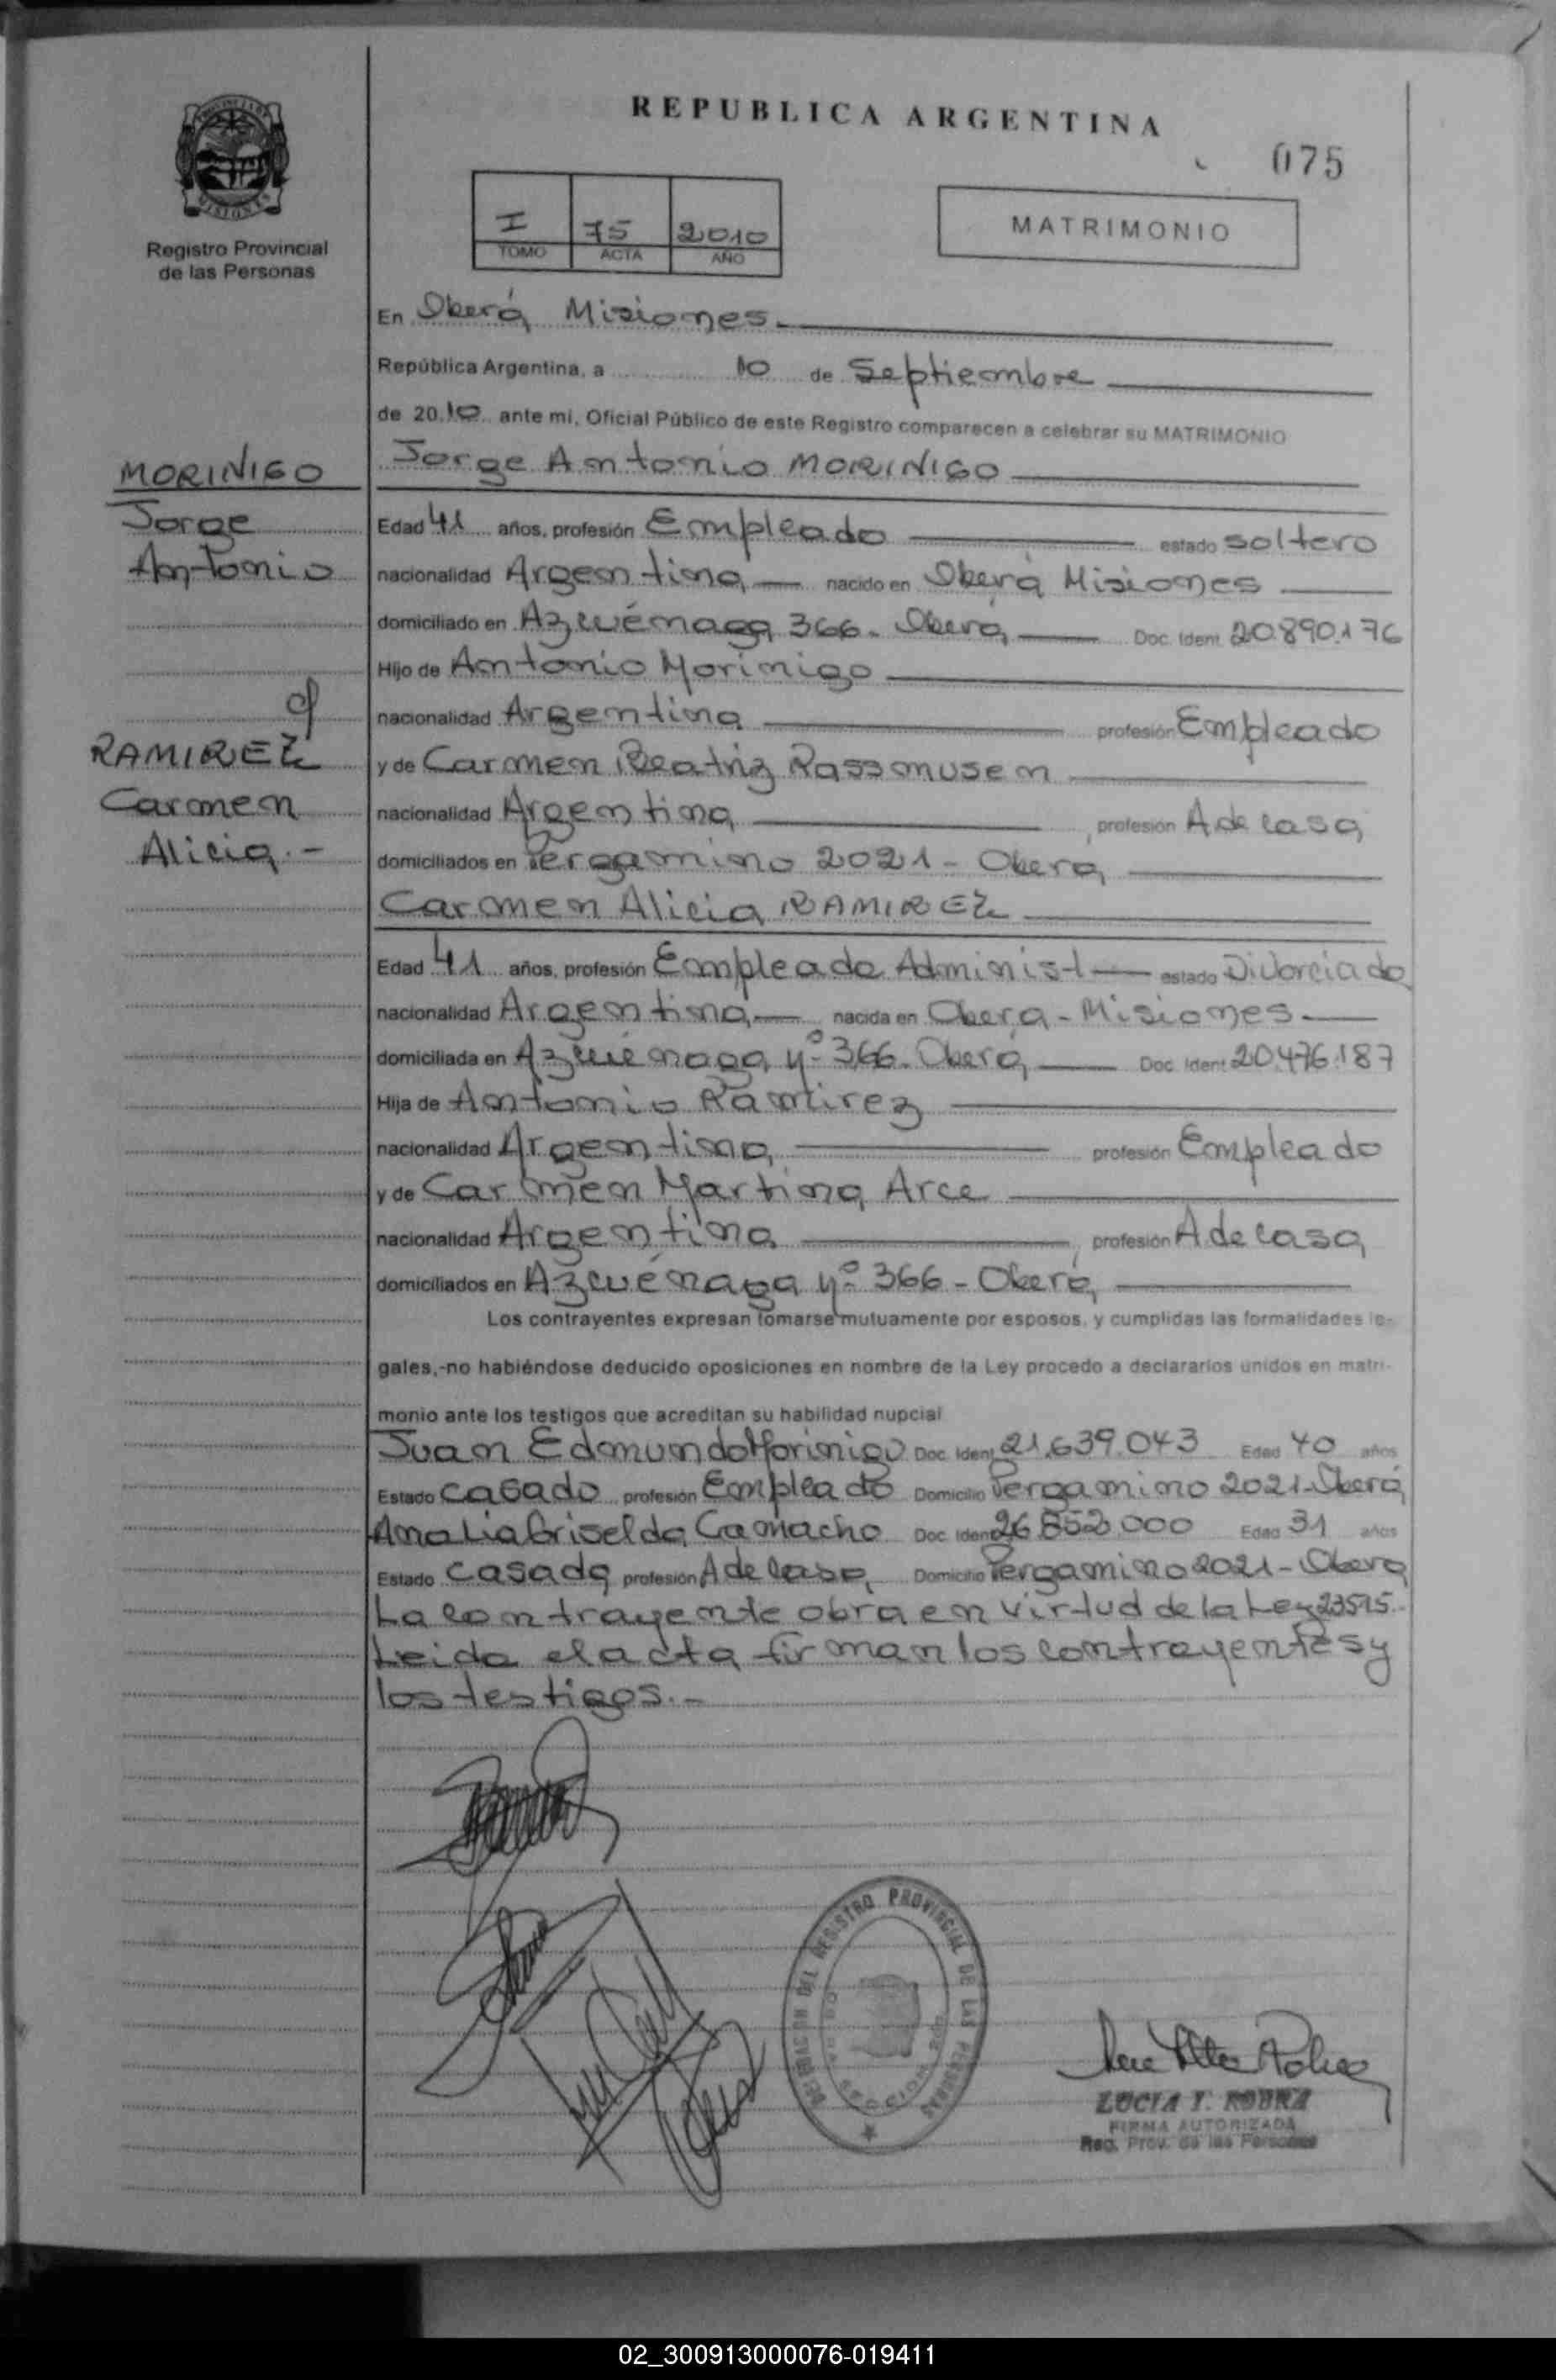 REPUBLICA ARGENTINA
075
MISIONES
Registro Provincial
de las Personas
I 75 2010
TOMO ACTA AÑO
MATRIMONIO
En Oberá Misiones.
República Argentina, a 10 de Septiembre
de 2010 ante mi, Oficial Público de este Registro comparecen a celebrar su MATRIMONIO
Jorge Antonio MORINIGO
MORIÑIGO
Jorge
Antonio
Edad 41 años, profesión Empleado estado soltero
nacionalidad Argentina nacido en Oberá Misiones
domiciliado en Azcuénaga 366. Oberá Doc. Ident. 20.890.176
Hijo de Antonio Morinigo
nacionalidad Argentina profesión Empleado
RAMIREZ
Carmen
Alicia.-
y de Carmen Beatriz Rassmusen
nacionalidad Argentina profesión A de casa
domiciliados en Pergamino 2021 - Obera
Carmen Alicia RAMIREZ
Edad 41 años, profesión Empleada Administ estado Divorciada
nacionalidad Argentina nacida en Obera - Misiones
domiciliada en Azcuénaga Nº 366. Oberá Doc. Ident 20.476.187
Hija de Antonio Ramirez
nacionalidad Argentina profesión Empleado
y de Carmen Martina Arce
nacionalidad Argentina profesión A. de casa
domiciliados en Azcuénaga Nº 366 - Oberá
Los contrayentes expresan tomarse mutuamente por esposos, y cumplidas las formalidades le-
gales,-no habiéndose deducido oposiciones en nombre de la Ley procedo a declararlos unidos en matri-
monio ante los testigos que acreditan su habilidad nupcial
Juan Edmundo Morinigo Doc. Ident. 21.639.043 Edad 40 años
Estado casado profesión Empleado Domicilio Pergamino 2021. Oberá
Analia Griselda Camacho Doc. Ident 26.852.000 Edad 31 años
Estado casada profesión A de casa Domicilio Pergamino 2021 - Obera
La contrayente obra en virtud de la Ley 23515.-
Leida el acta firman los contrayentes y
los testigos.-
DELEGACION DEL REGISTRO PROVINCIAL DE LAS PERSONAS
LUCIA T. ROBRA
FIRMA AUTORIZADA
Reg. Prov. de las Personas
02_300913000076-019411